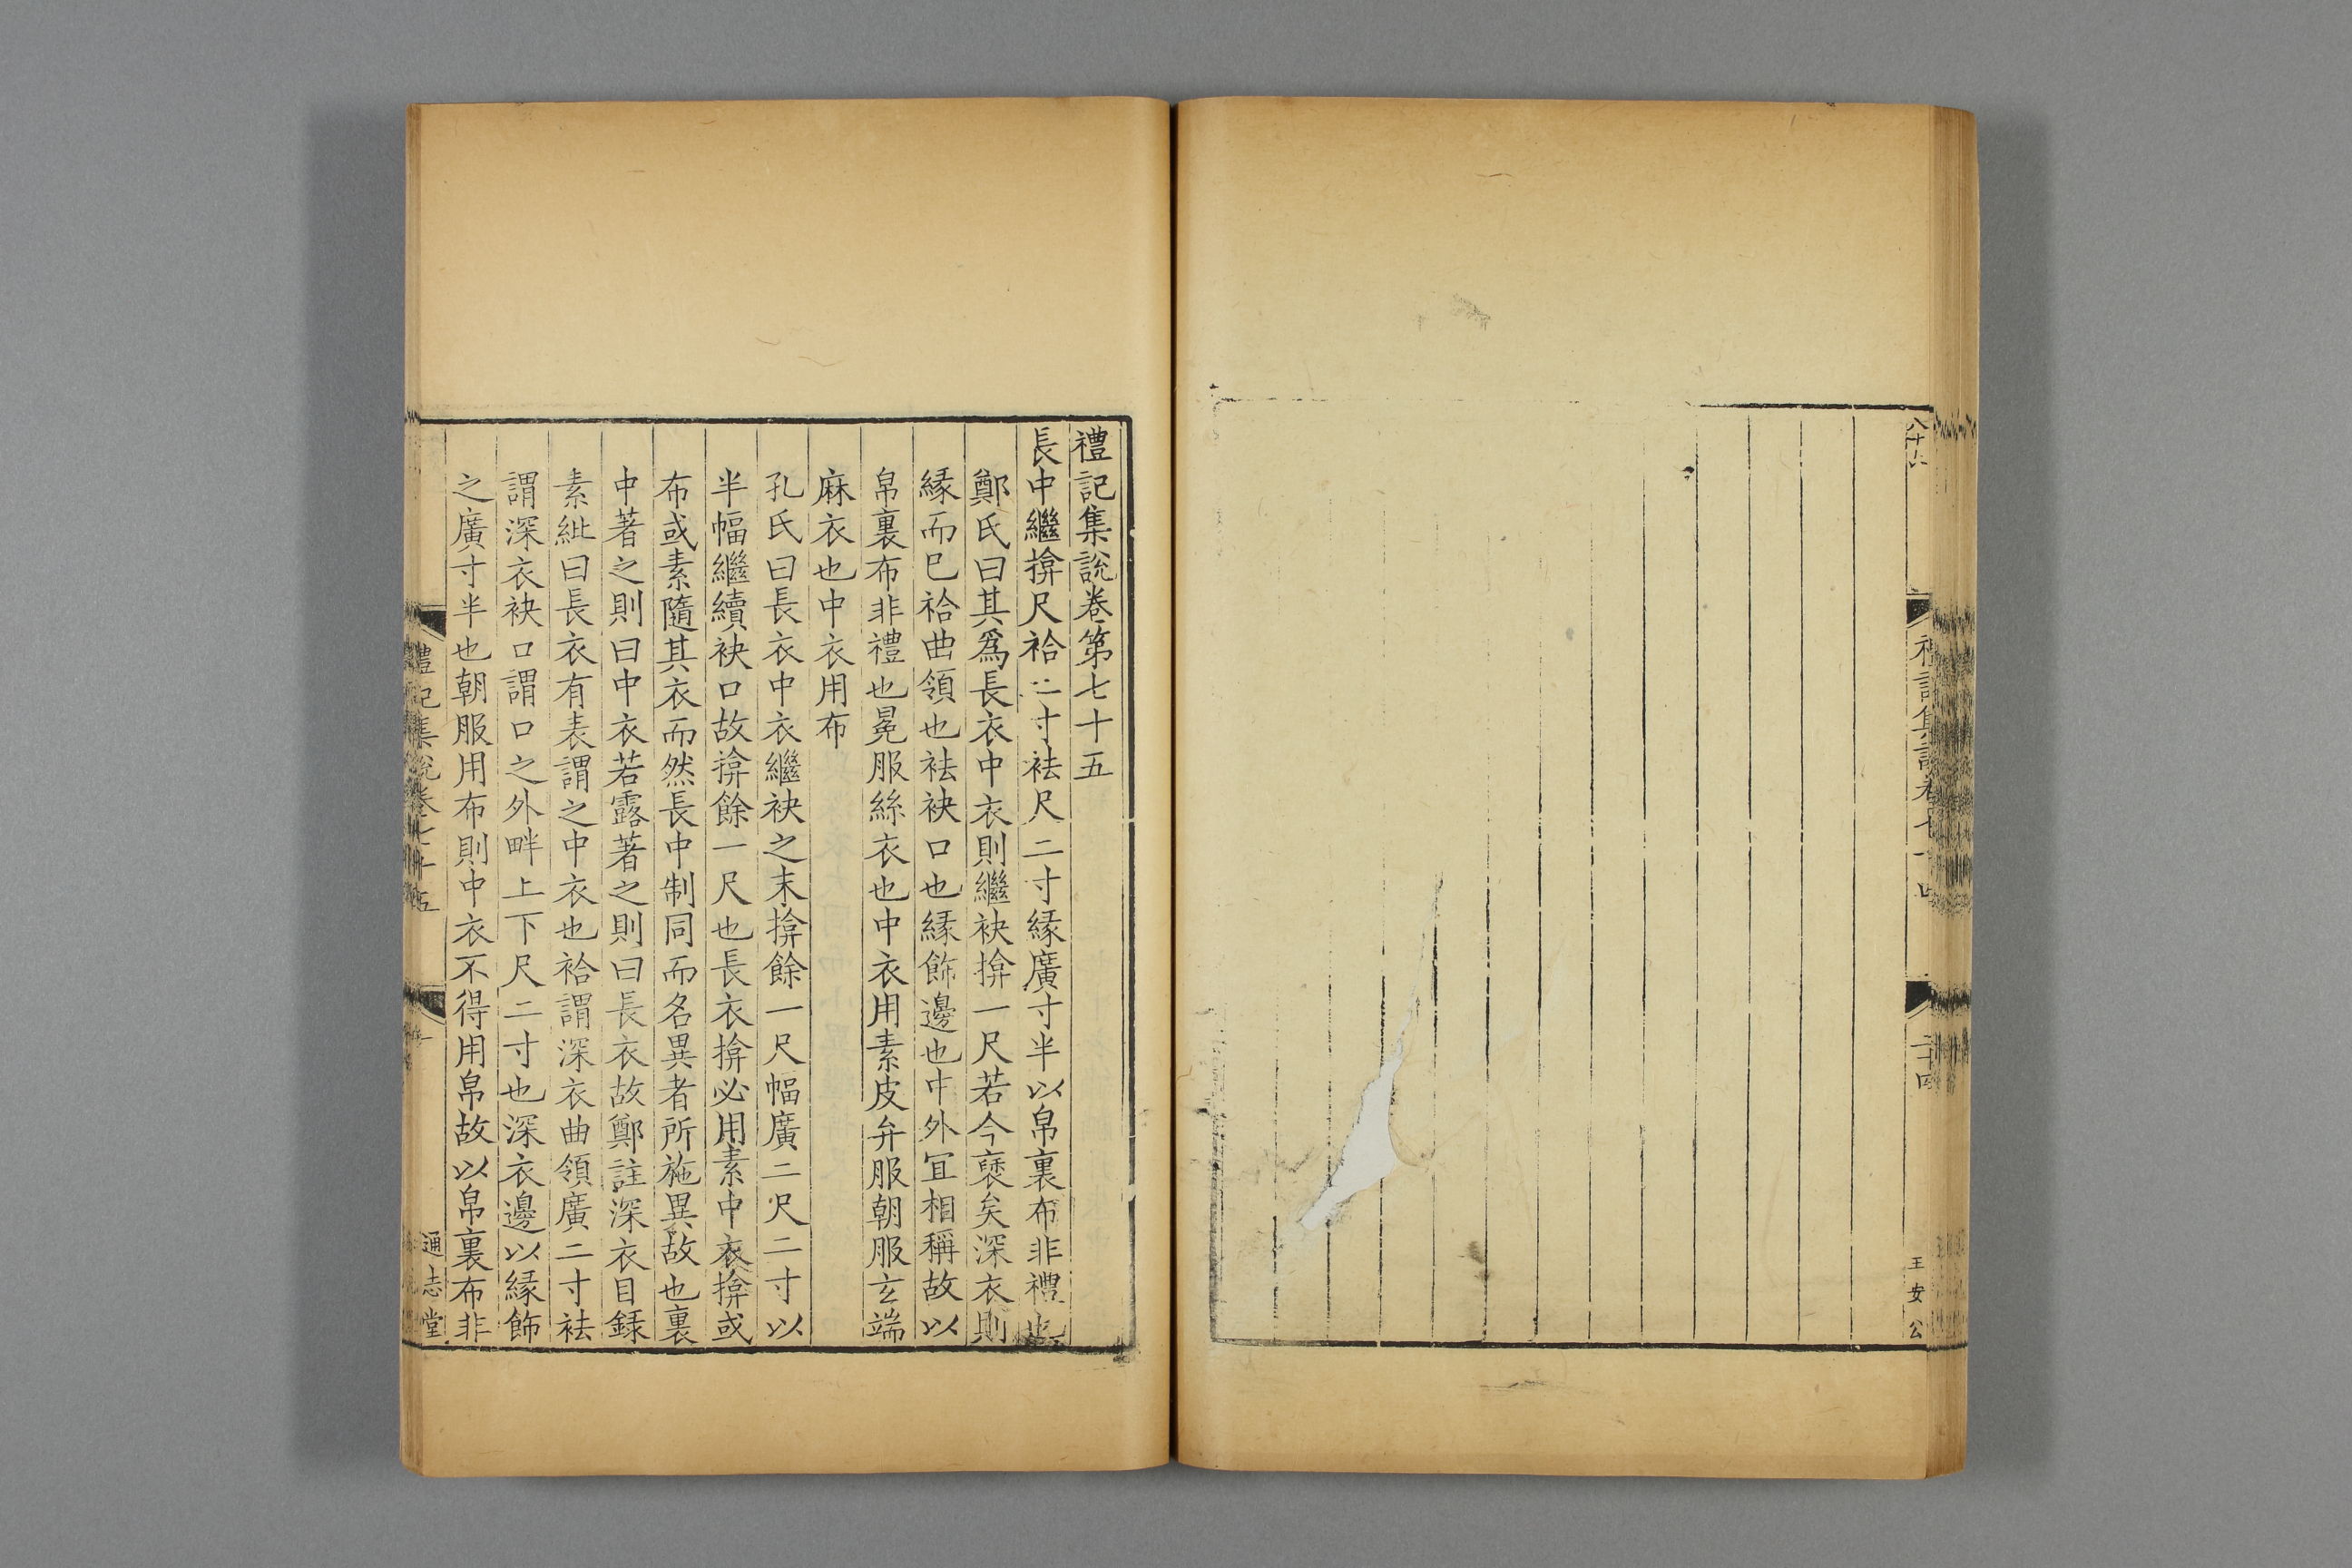 八十六
禮記集說卷七十四
二十四
王安公
禮記集說卷第七十五
長中繼揜尺袷二寸袪尺二寸緣廣寸半以帛裏布非禮也
鄭氏曰其爲長衣中衣則繼袂揜一尺若今褎矣深衣則
緣而已袷曲領也袪袂口也緣飾邊也中外宜相稱故以
帛裏布非禮也冕服絲衣也中衣用素皮弁服朝服玄端
麻衣也中衣用布
孔氏曰長衣中衣繼袂之末揜餘一尺幅廣二尺二寸以
半幅繼續袂口故揜餘一尺也長衣揜必用素中衣揜或
布或素隨其衣而然長中制同而名異者所施異故也裏
中著之則曰中衣若露著之則曰長衣故鄭註深衣目錄
素紕曰長衣有表謂之中衣也袷謂深衣曲領廣二寸袪
謂深衣袂口謂口之外畔上下尺二寸也深衣邊以緣飾
之廣寸半也朝服用布則中衣不得用帛故以帛裏布非
禮記集說卷七十五
一
通志堂